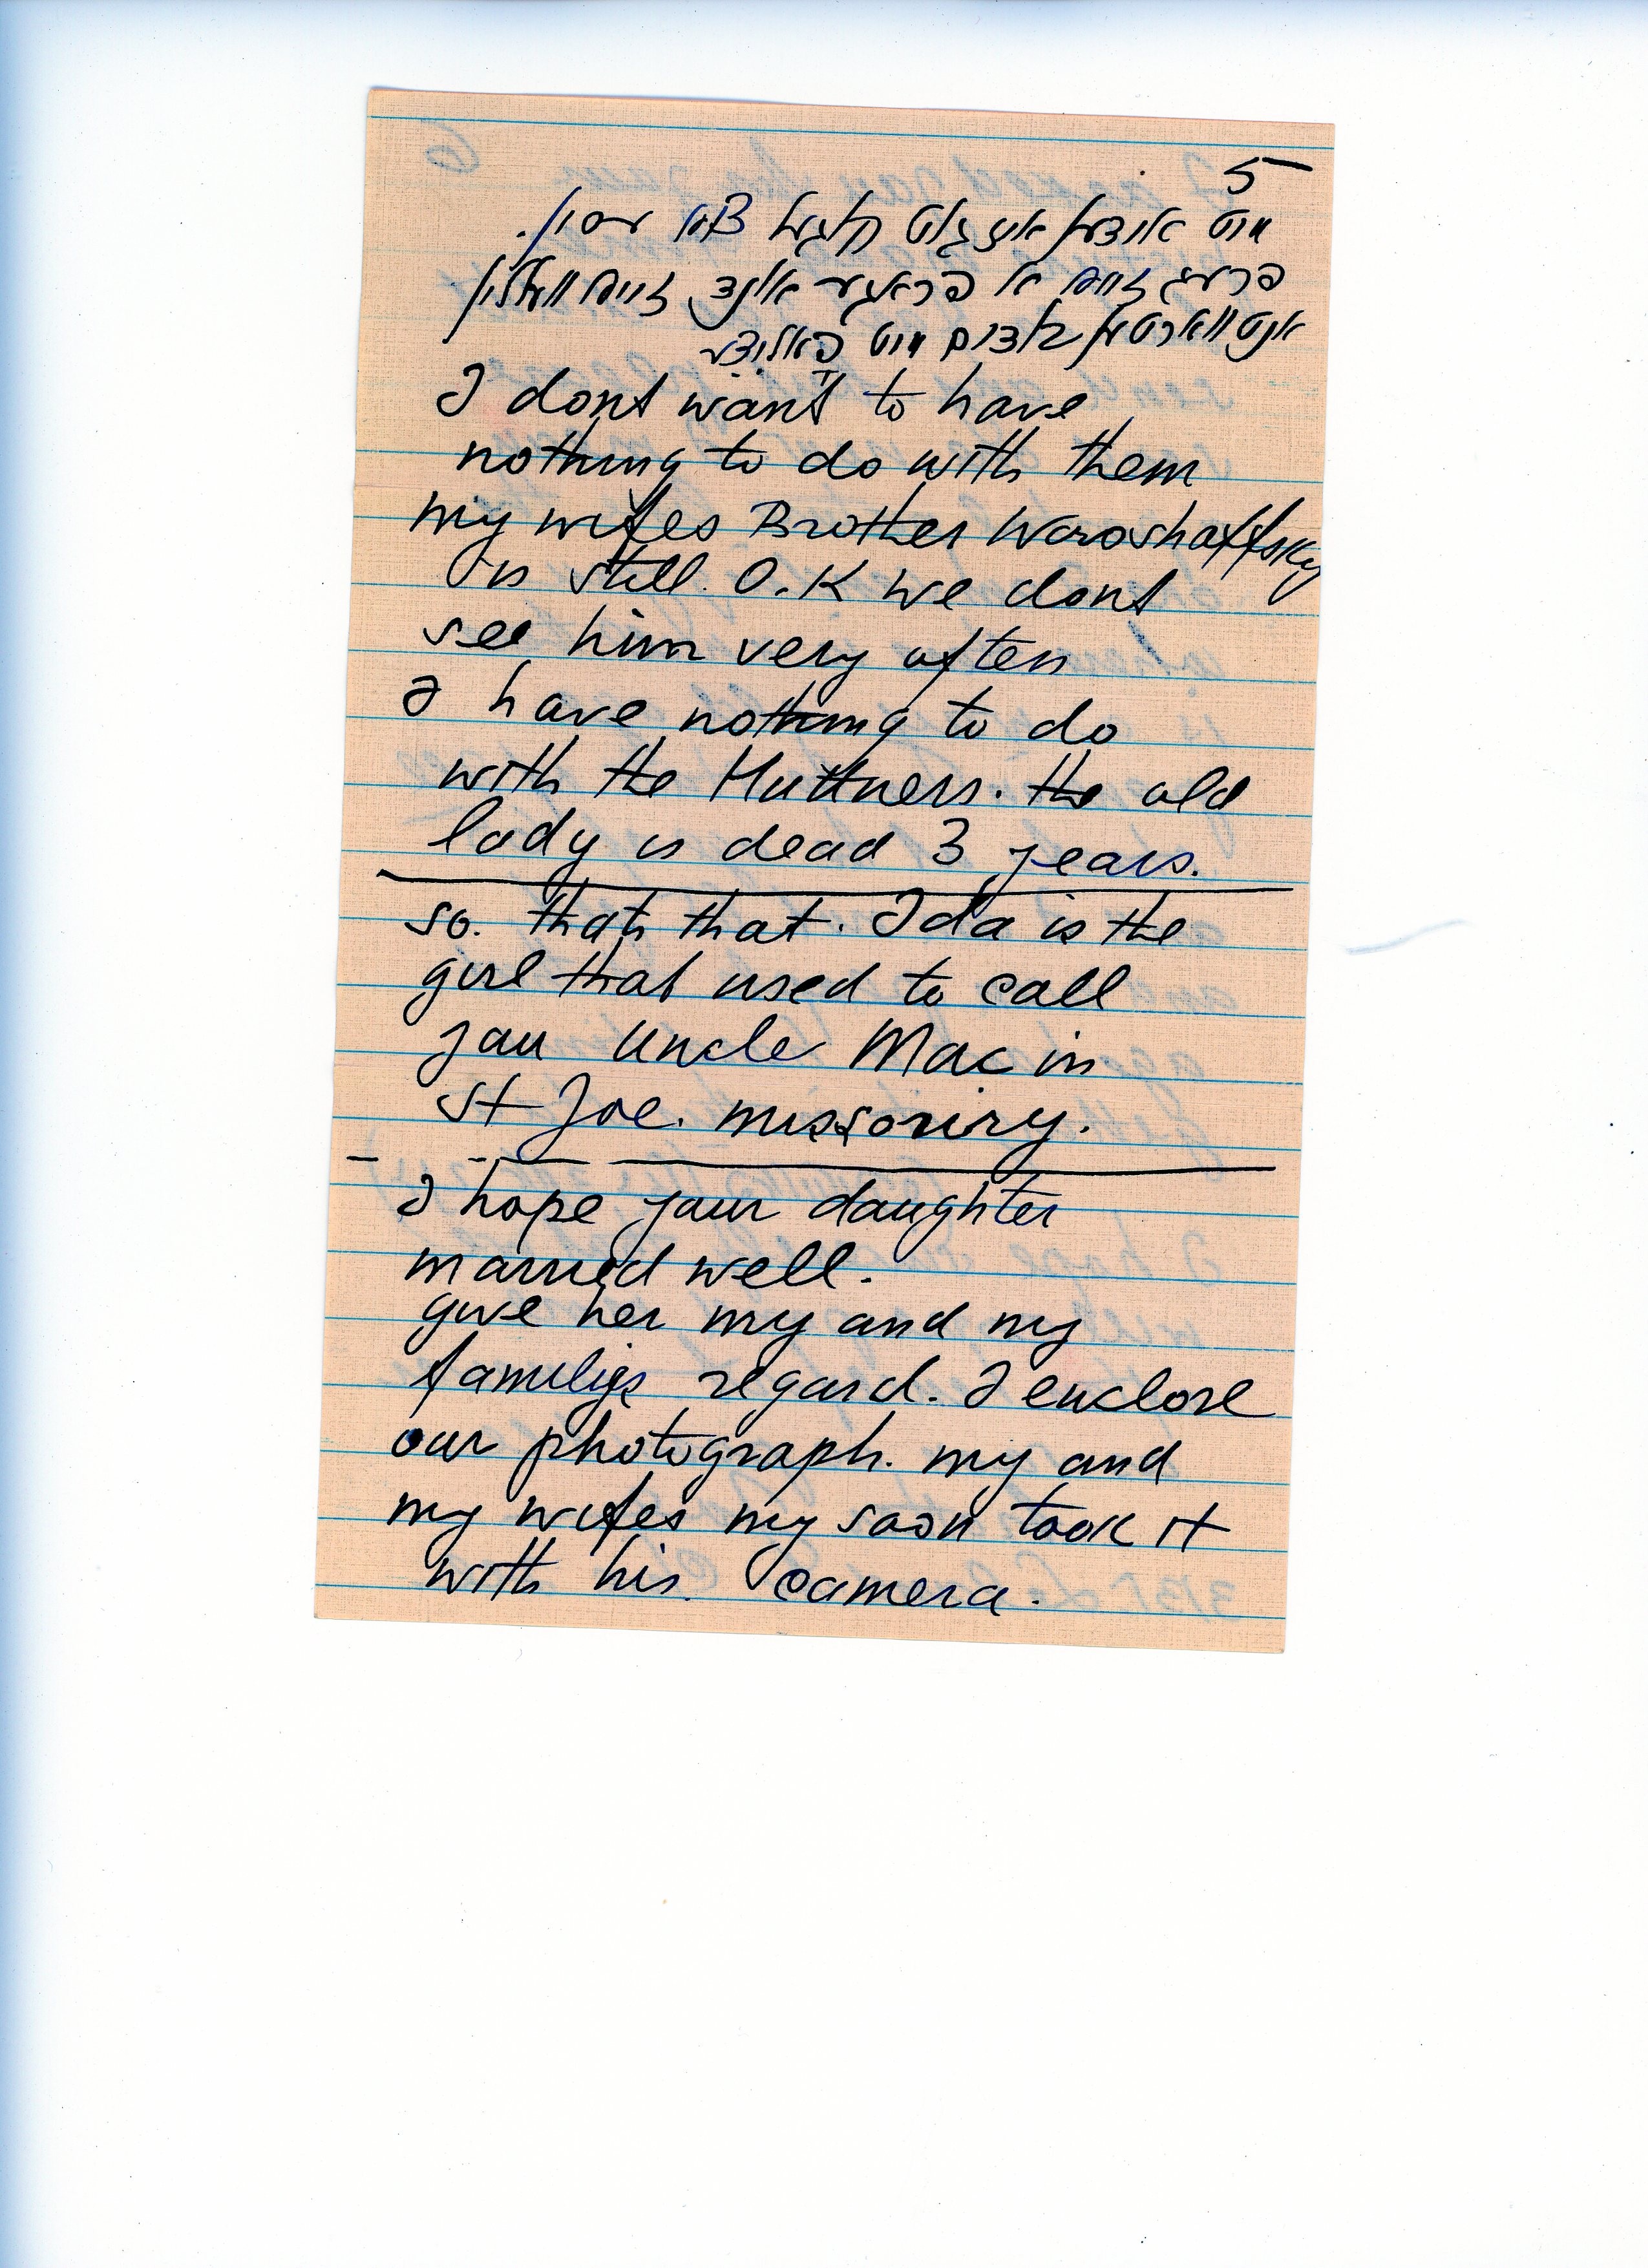 5
מיט אידען איז גוט
פרעג זיי א פראגע אונד זיי וועלען
אנטווארטען מיט
I dont want to have
nothing to do with them
my wifes Brother Waroshaffsky
is still O.K we dont
see him very often
I have nothing to do
with the Huttners. the old
lady is dead 3 years.
so. thats that. Ida is the
girl that used to call
you Uncle Mac in
St Joe. missouriry.
I hope your daughter
married well.
give her my and my
familys regard. I enclose
our photograph. my and
my wifes my soon took it
with his camera.